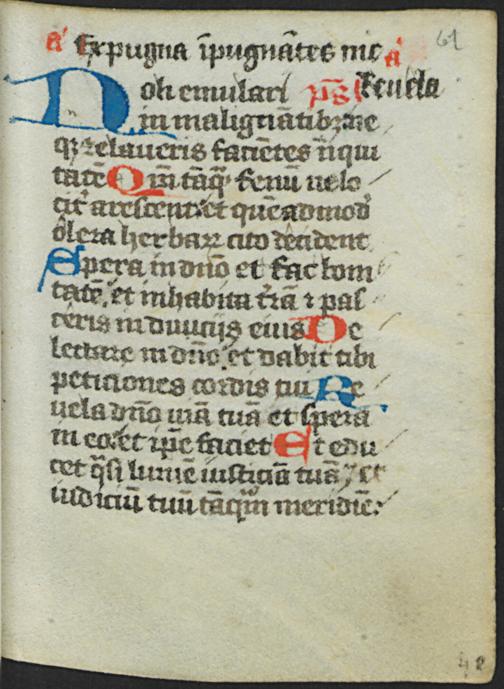 61
a' Expugna īpugnātes me a'
Noli emulari ps̄ Reuela
in malignātibꝫ ne
qꝫ zelaueris faciētes iniqui
tatē Qm̄ tāqꝫ fenū uelo
cit' arescent et quēadmod'
olera herbaꝝ cito decident
Spera in dn̄o et fac boni
tatē et inhabita t'rā ⁊ pas
ceris in diuicijs eius De
lectare in dn̄o et dabit tibi
peticiones cordis tui Re
uela dn̄o uiā tuā et spera
in eo et ip̄e faciet Et edu
cet q̄si lumē iusticiā tuā et
iudiciū tuū tāqm̄ meridiē
48